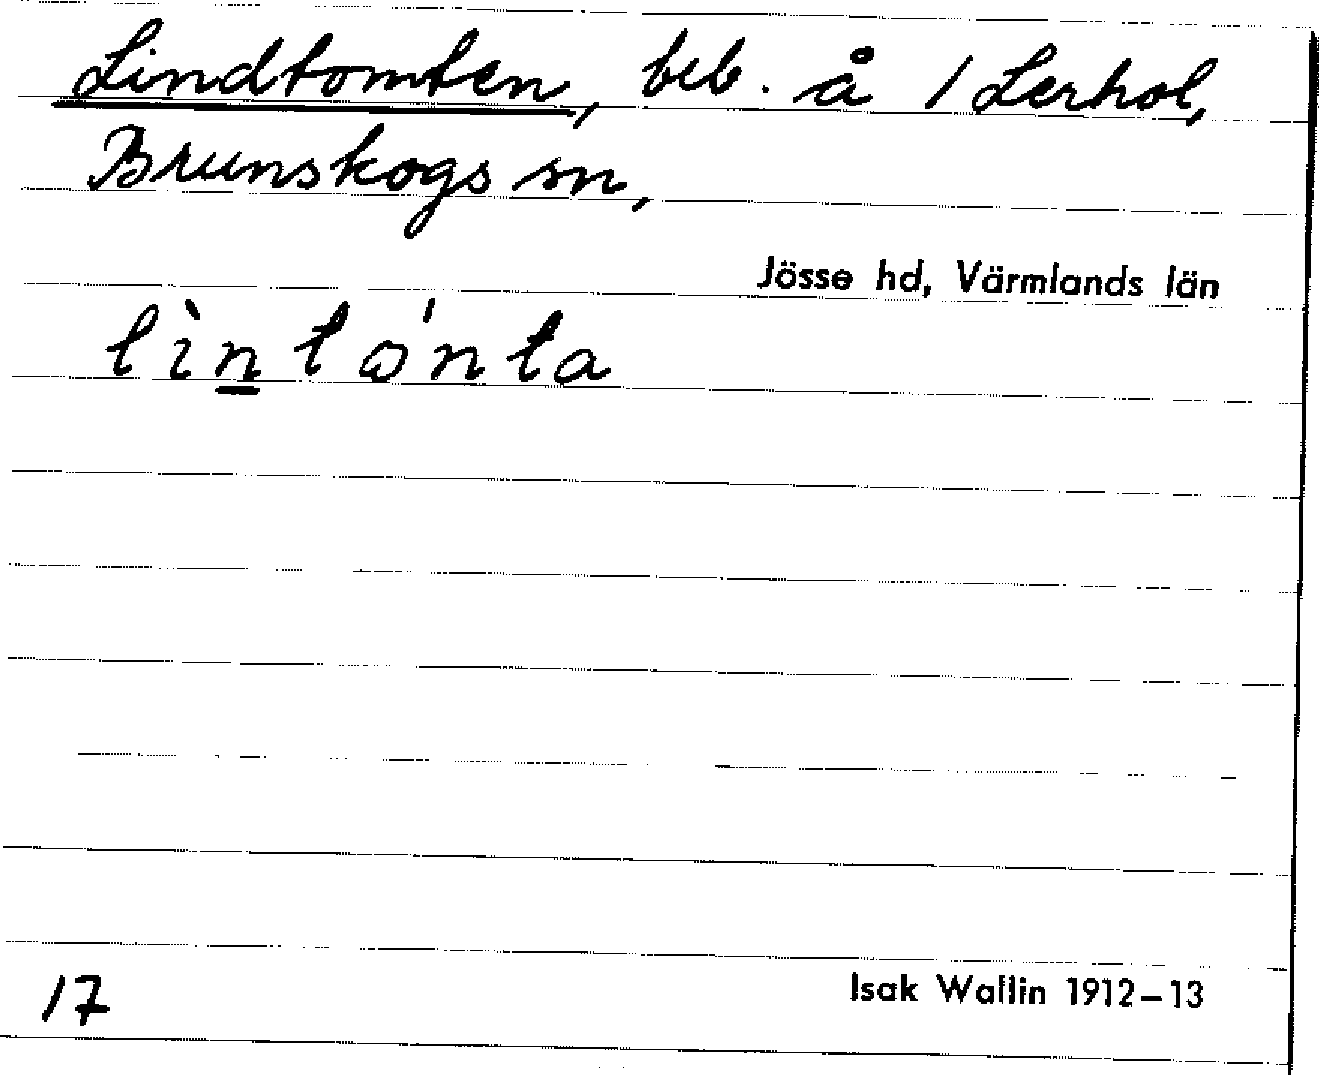 Lindtomten, beb. å 1 Lerhol,
Brunskogs sn,
Jösse hd, Värmlands län
lìntω̍nta
17
Isak Wallin 1912–13